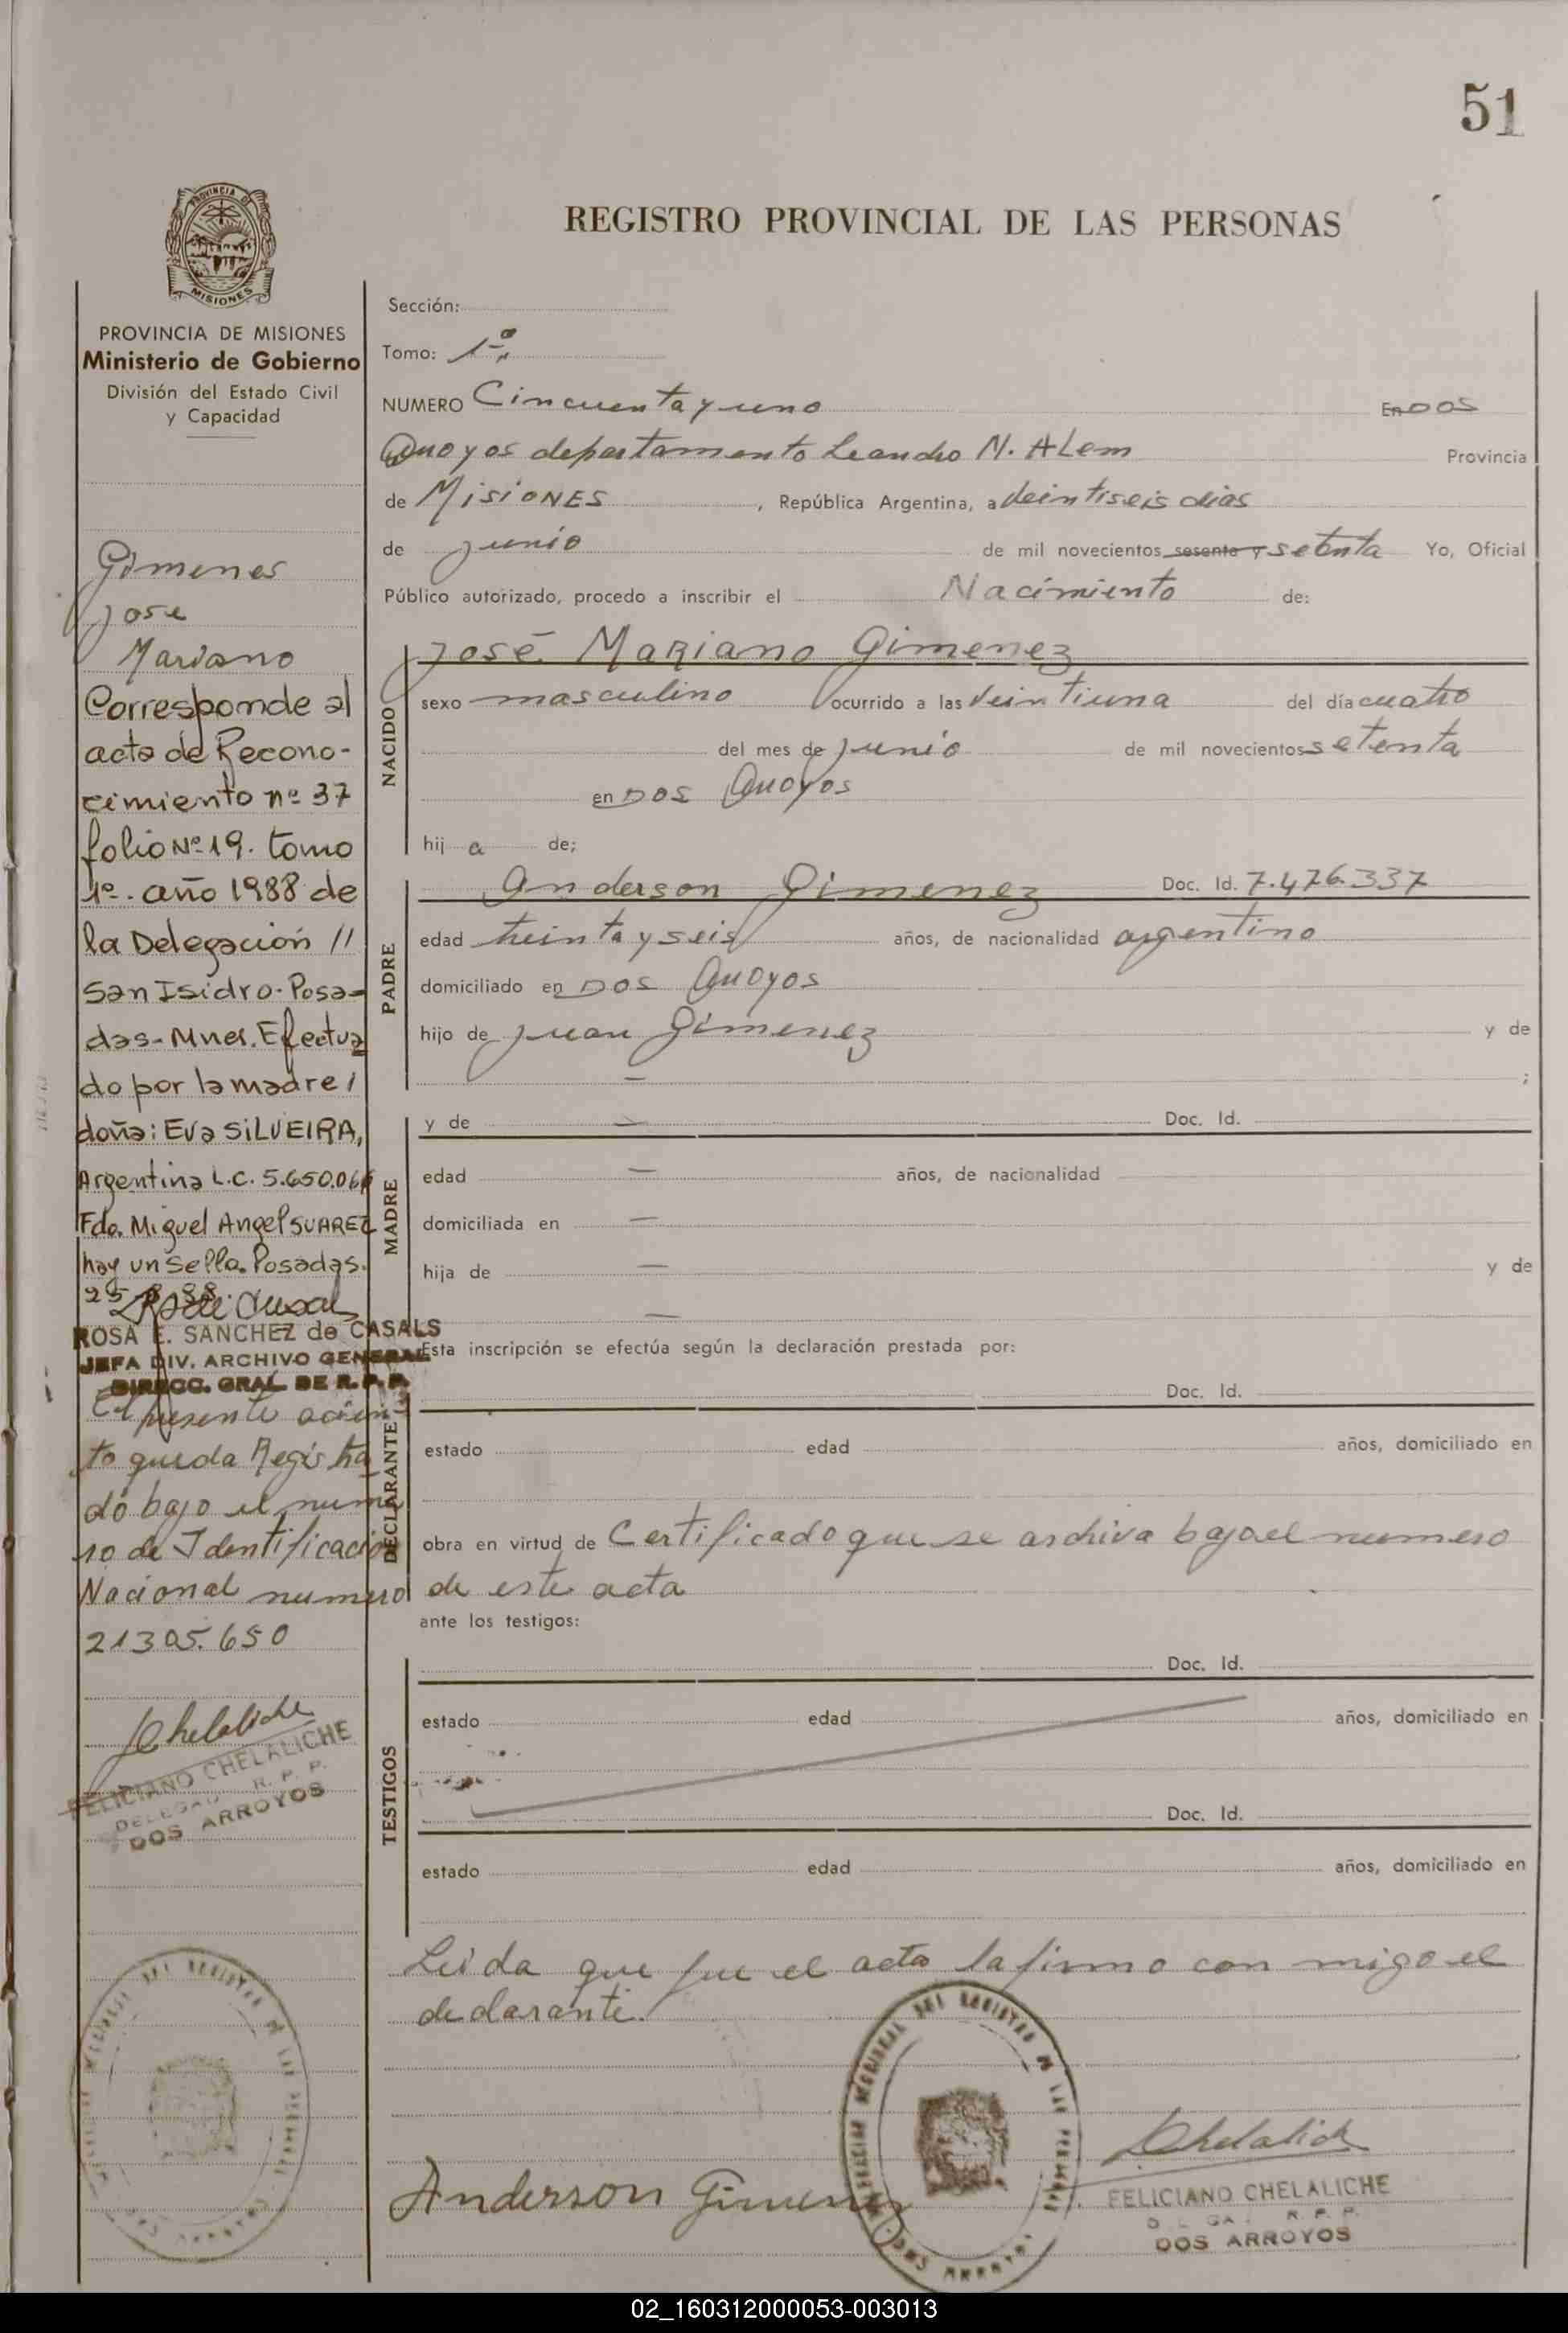 51
REGISTRO PROVINCIAL DE LAS PERSONAS
PROVINCIA DE
MISIONES
PROVINCIA DE MISIONES
Ministerio de Gobierno
División del Estado Civil
y Capacidad
Gimenes
Jose
Mariano
Corresponde al
acta de Recono-
cimiento nº 37
folio Nº 19. tomo
1º. año 1988 de
la Delegación //
San Isidro-Posa-
das-Mnes. Efectua
do por la madre/
doña: Eva SILVEIRA,
Argentina L.C. 5.650.061
Fdo. Miguel Angel SUAREZ
hay un Sello. Posadas.
25 8 88.
ROSA E. SANCHEZ de CASALS
JEFA DIV. ARCHIVO GENERAL
DIRECC. GRAL DE R.P.P.
El presente acien
to queda Registra
do bajo el nume
ro de Identificacion
Nacional numero
21305.650
Chelaliche
FELICIANO CHELALICHE
DELEGAD R. P. P.
DOS ARROYOS
Sección:
Tomo: 1º
NUMERO Cincuenta y uno En DOS
Arroyos departamento Leandro N. ALem Provincia
de MisiONES , República Argentina, a veintiseis dias
de junio de mil novecientos sesenta y setenta Yo, Oficial
Público autorizado, procedo a inscribir el Nacimiento de:
NACIDO
José Mariano Gimenez
sexo masculino ocurrido a las veintiuna del día cuatro
del mes de junio de mil novecientos setenta
en DOS Arroyos
hij a de;
PADRE
Anderson Gimenez Doc. Id. 7.476.337
edad treinta y seis años, de nacionalidad argentino
domiciliado en DOS Arroyos
hijo de Juan Gimenez y de
— ;
MADRE
y de — Doc. Id.
edad — años, de nacionalidad
domiciliada en —
hija de — y de
—
Esta inscripción se efectúa según la declaración prestada por:
DECLARANTE
Doc. Id.
estado edad años, domiciliado en
obra en virtud de Certificado que se archiva bajo el numero
de este acta
ante los testigos:
TESTIGOS
Doc. Id.
estado edad años, domiciliado en
Doc. Id.
estado edad años, domiciliado en
Leida que fue el acta la firma con migo el
declarante.
Anderson Gimenez
Chelalich
FELICIANO CHELALICHE
R. P. P.
DOS ARROYOS
02_160312000053-003013